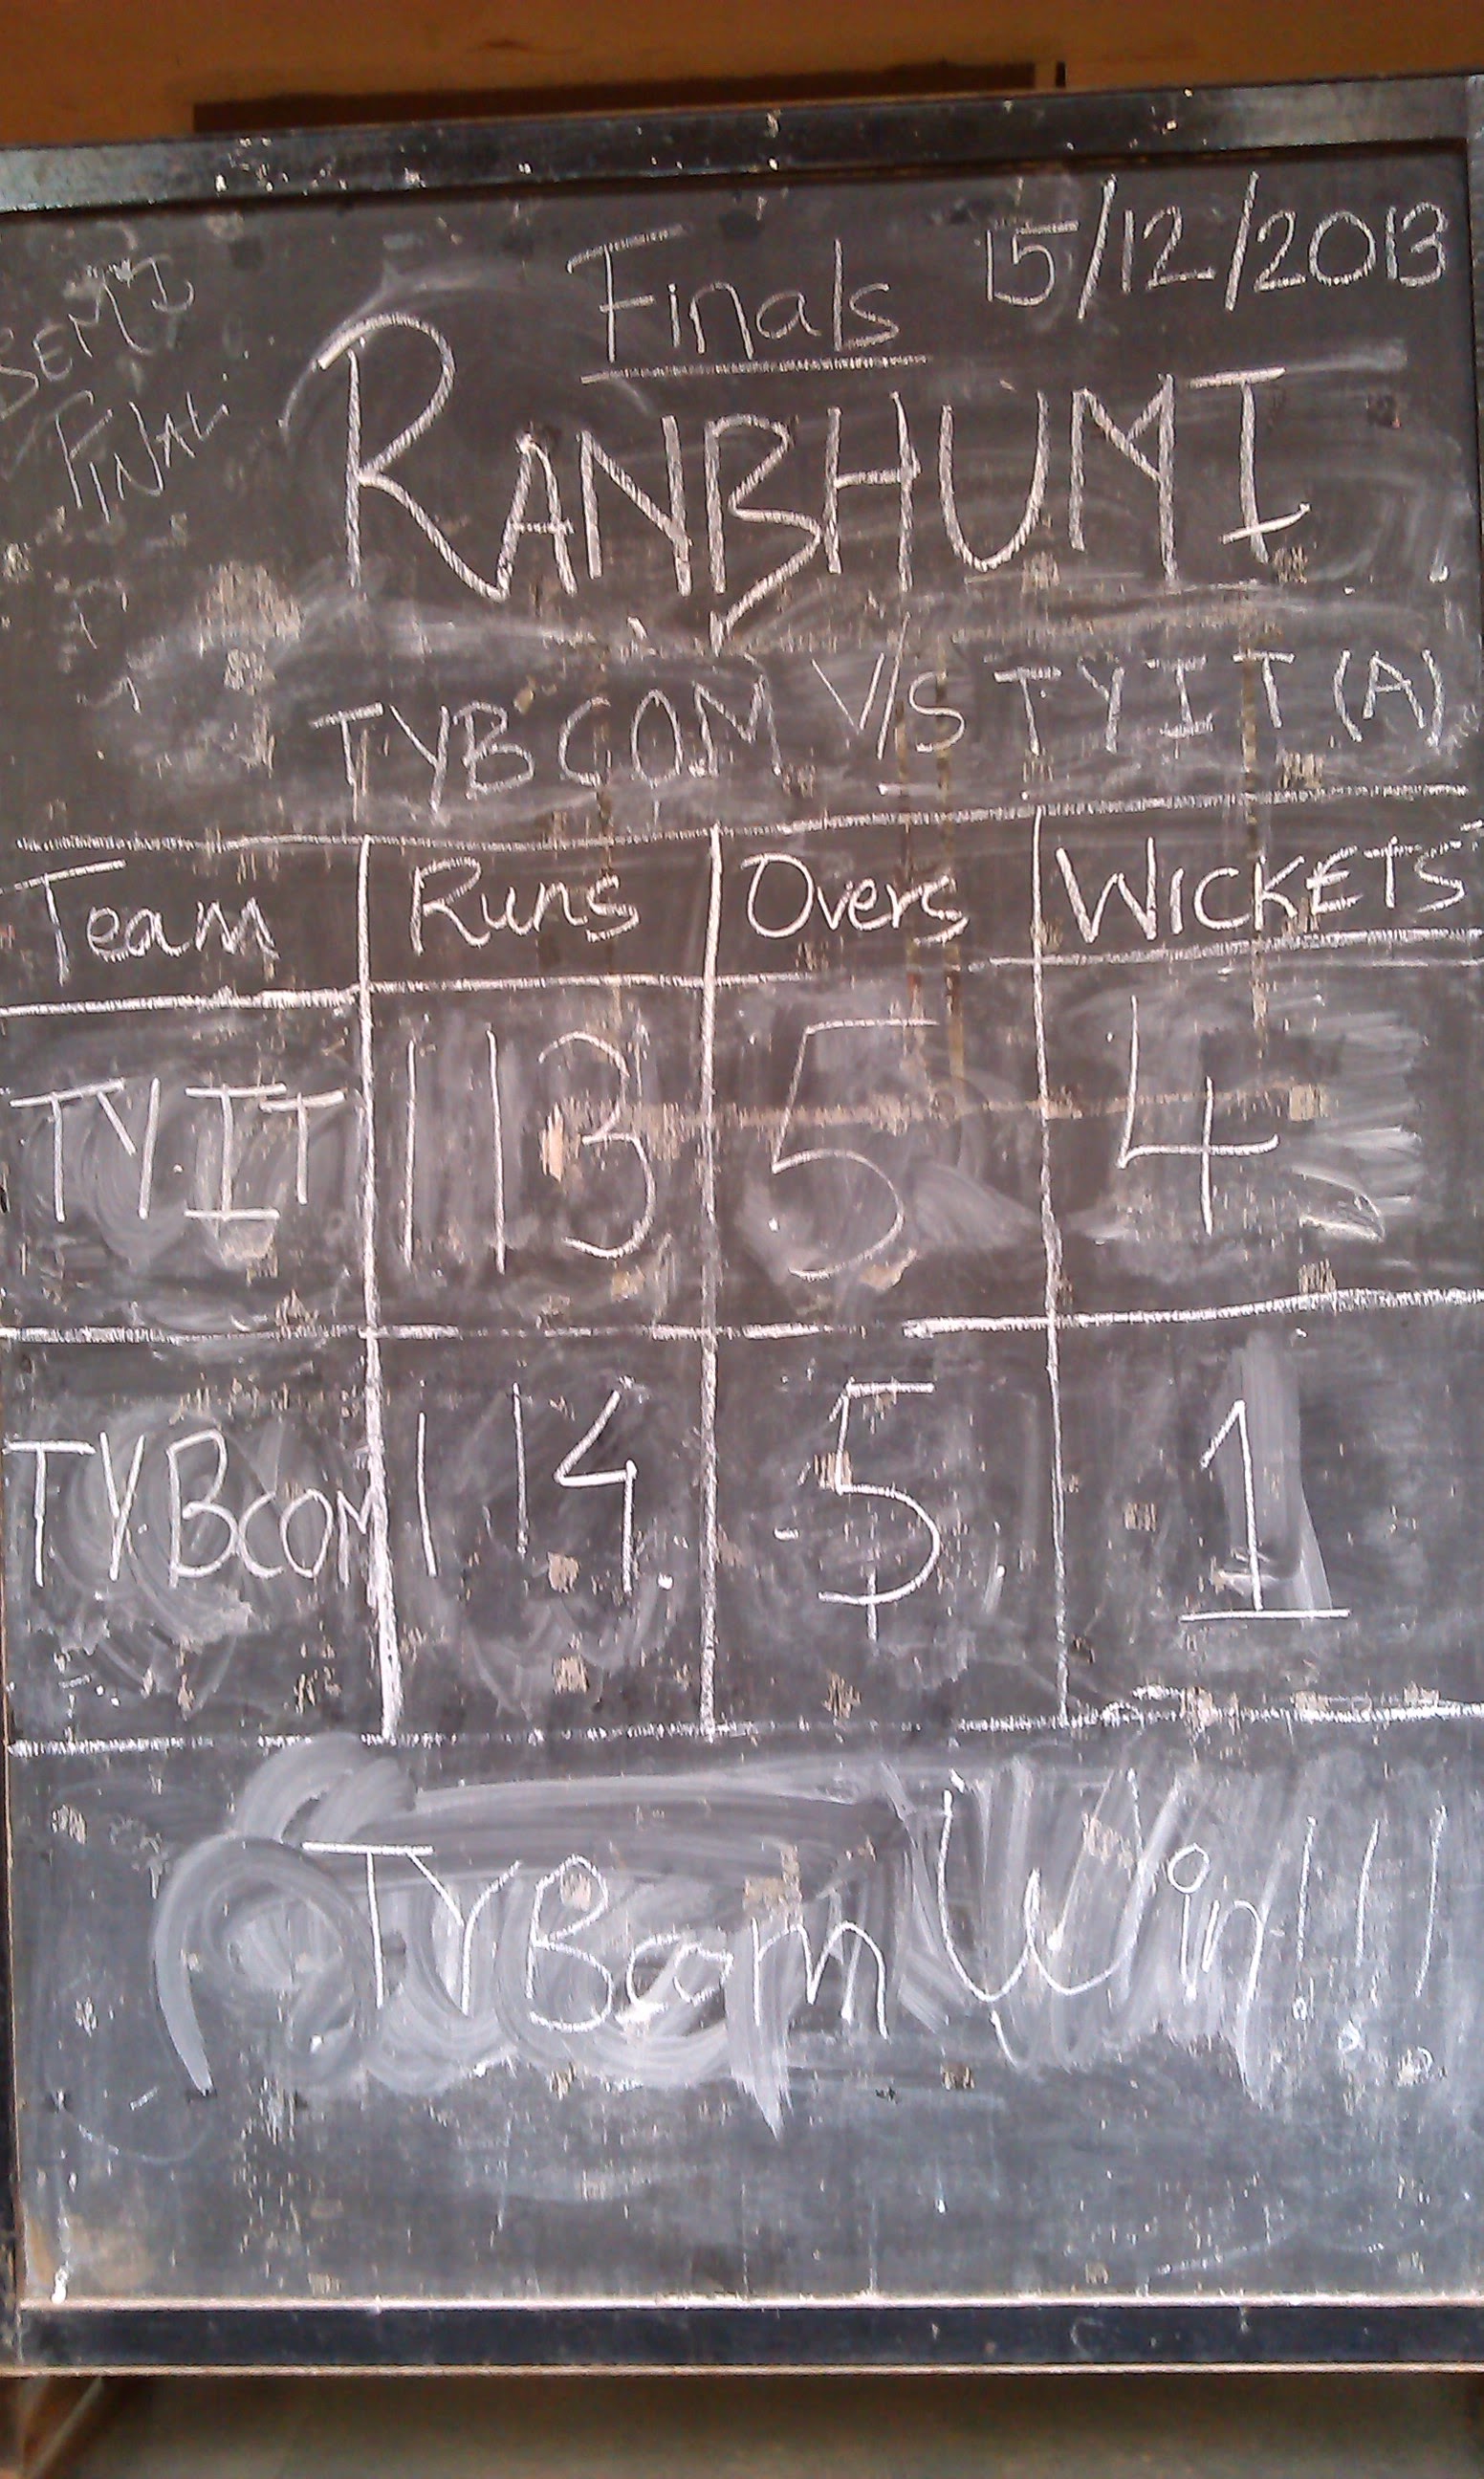 Finals 15/12/2013
SEMI
FINAL
RANBHUMI
TYBCOM V/S TYIT (A)
Team Runs Overs WICKETS
TY.IT 113 5 4
TYBCOM 114 5 1
TYBcom Win!!!